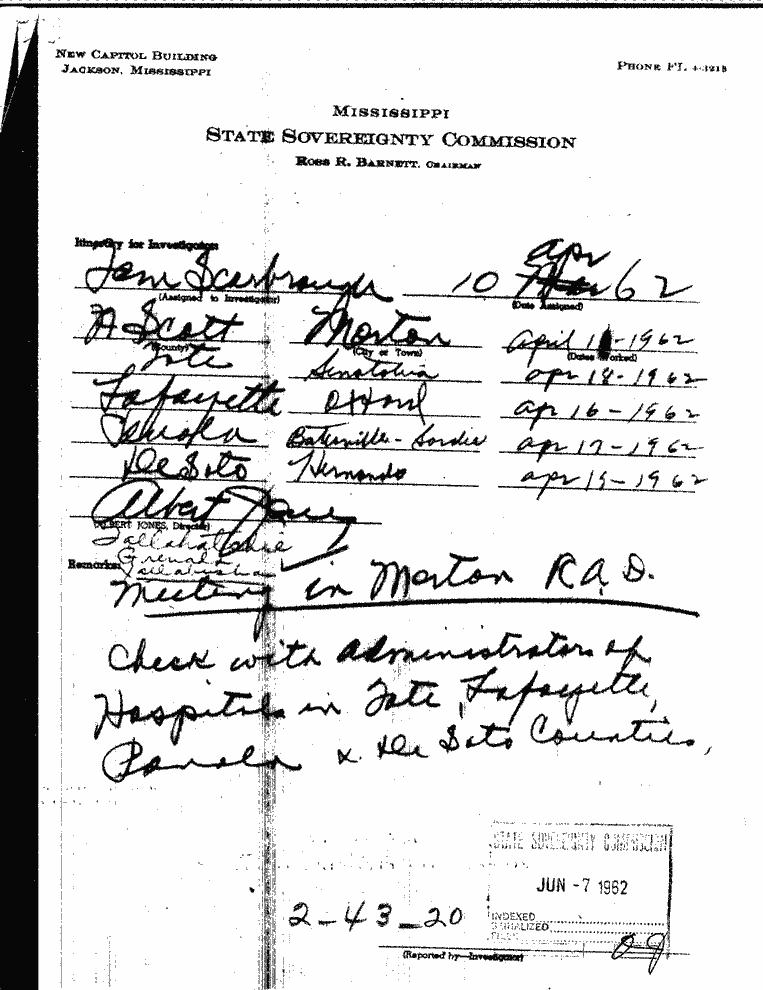 NEW CAPITOL BUILDING
JACKSON, MISSISSIPPI
PHONE FL 4-3218
MISSISSIPPI
STATE SOVEREIGNTY COMMISSION
ROSS R. BARNETT, CHAIRMAN
Itinerary for Investigator:
Tom Scarbrough 10 Apr 62
(Assigned to Investigator) (Date Assigned)
Scott Morton April 1962
(County) (City or Town) (Dates Worked)
Tate Senatobia apr 18-1962
Lafayette Oxford apr 16-1962
Panola Batesville-Sardis apr 17-1962
DeSoto Hernando apr 19-1962
Albert Jones
ALBERT JONES, Director)
Tallahatchie
Grenada
Remarks:
Meeting in Morton R.A.D.
Check with administrators of
Hospitals in Tate, Lafayette,
Panola & De Soto Counties,
STATE SOVEREIGNTY COMMISSION
JUN -7 1962
2-43-20
INDEXED
SERIALIZED
FILED
(Reported by—Investigator)